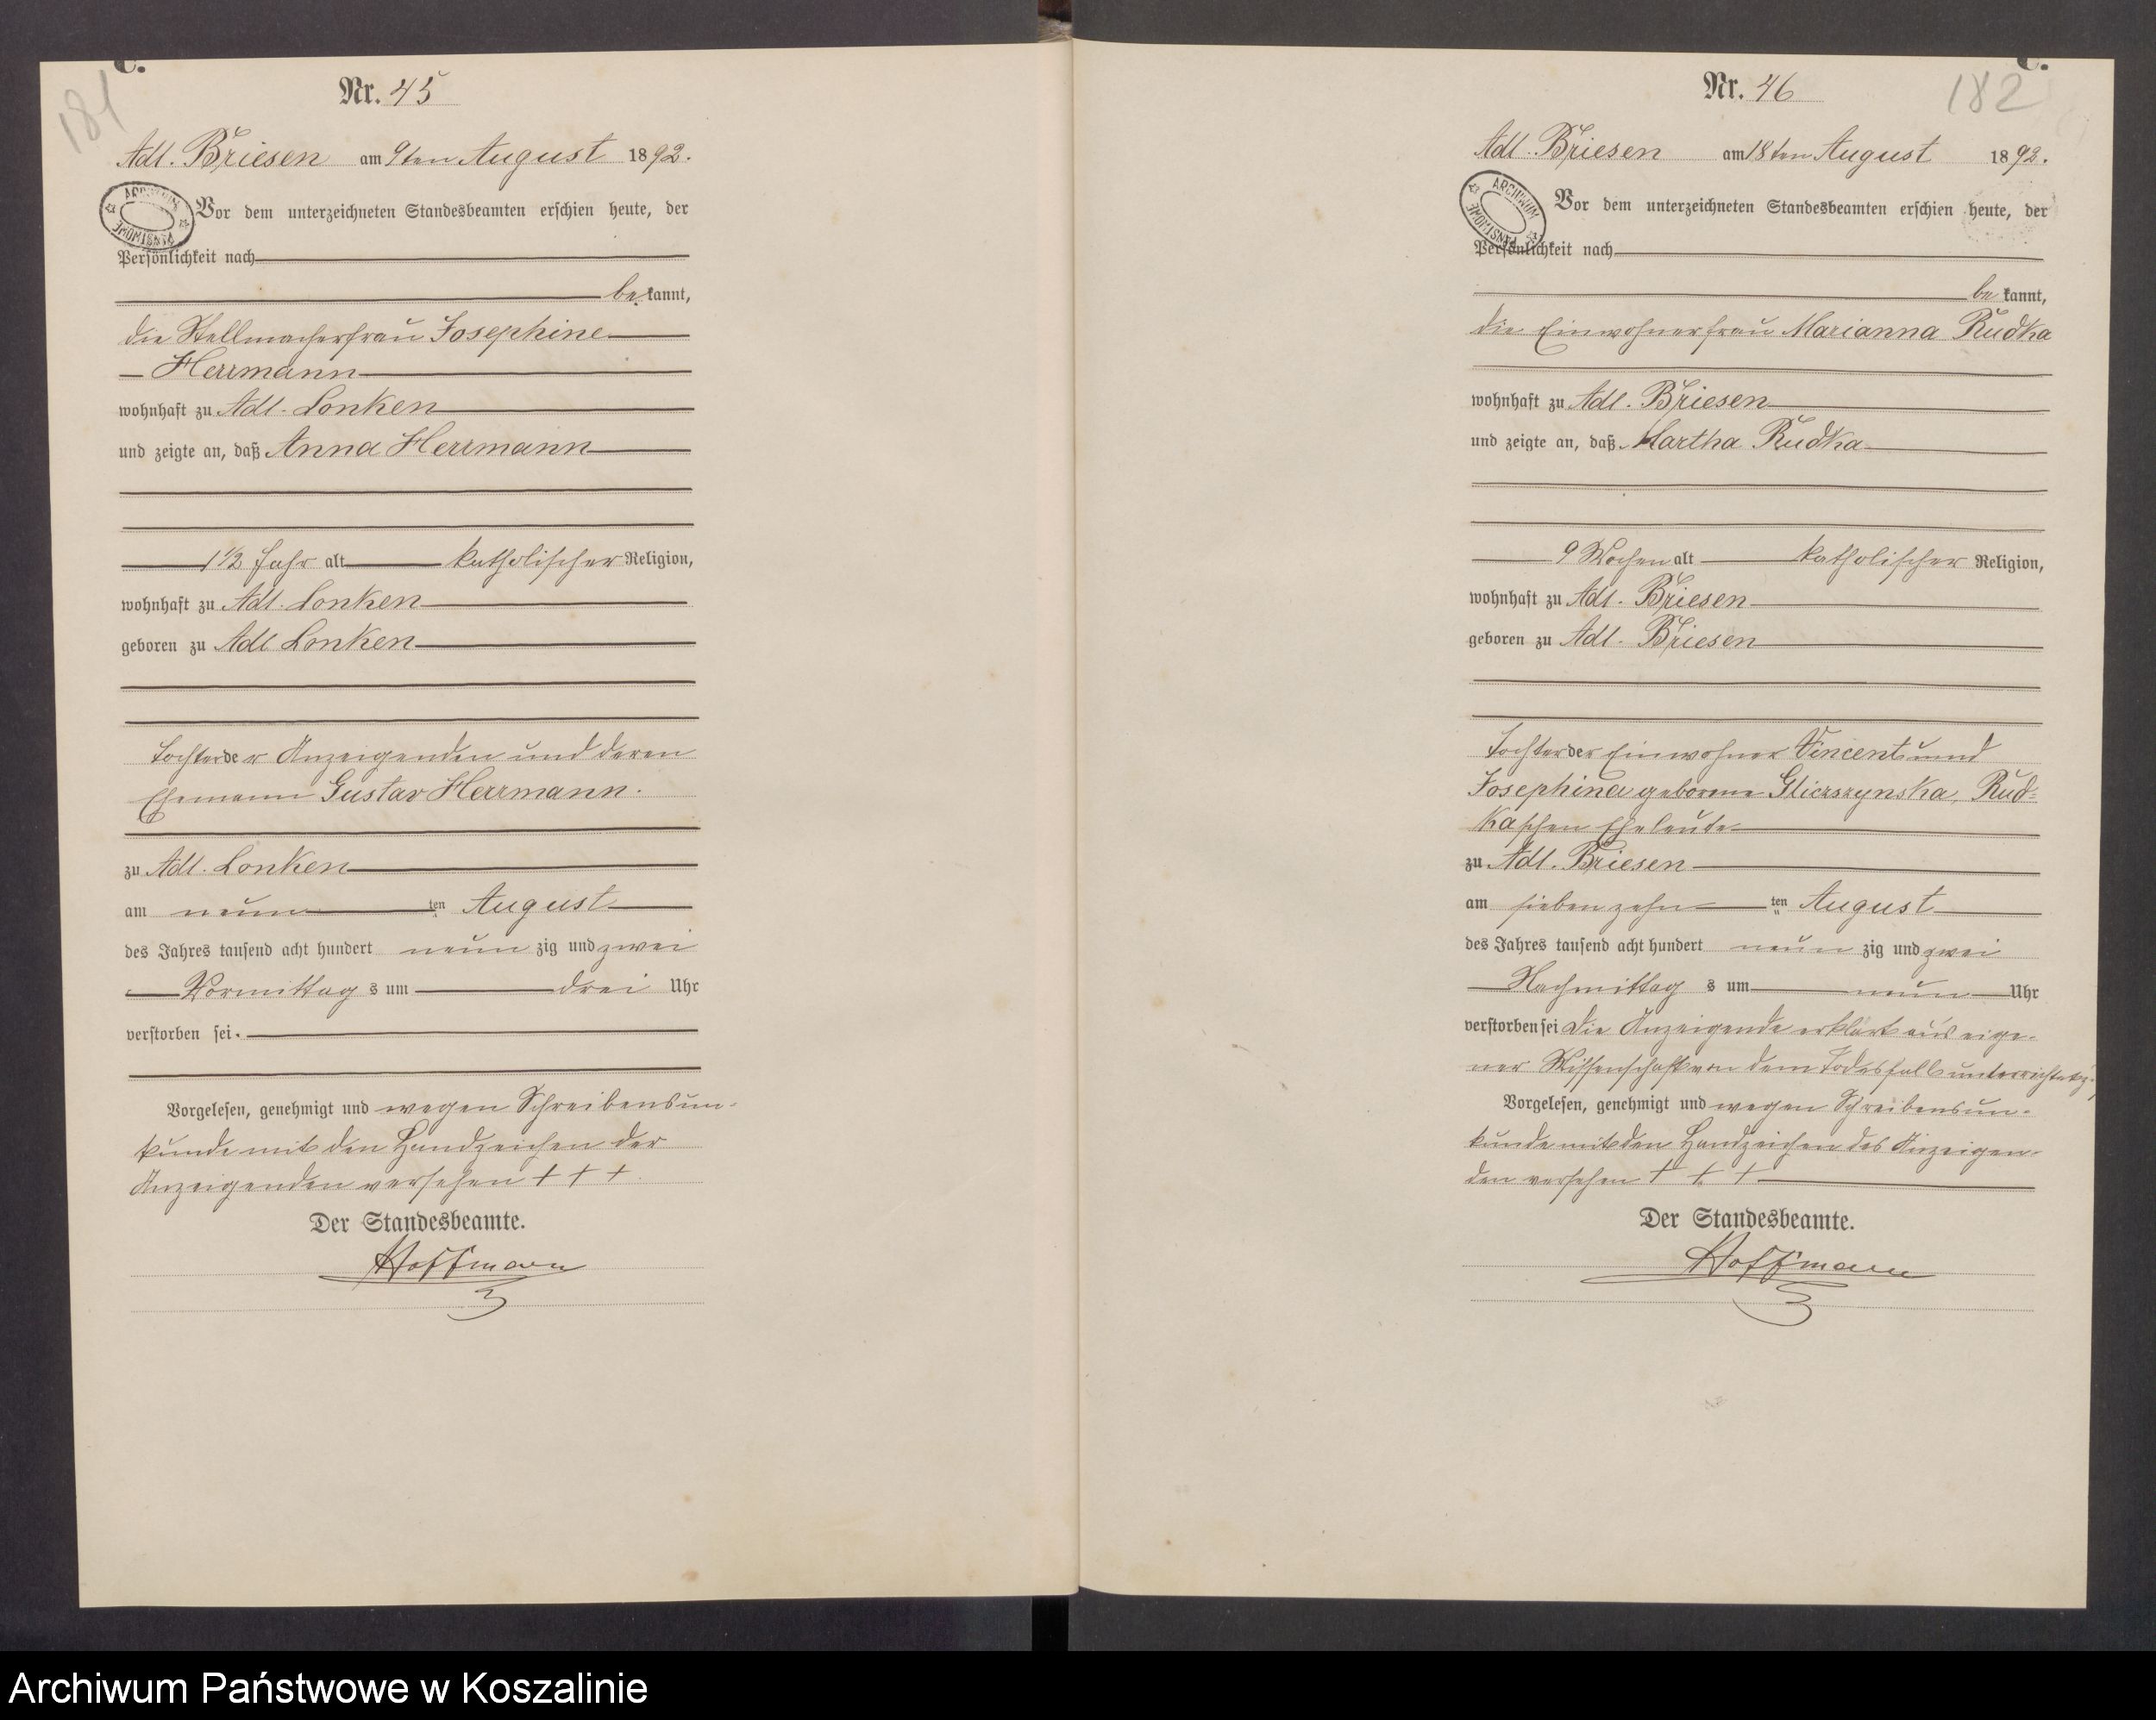 C.
181
Nr. 45
Adl. Briesen am 9ten August 1892.
ARCHIWUM PAŃSTWOWE
Vor dem unterzeichneten Standesbeamten erschien heute, der
Persönlichkeit nach
be kannt,
die Stellmacherfrau Josephine
Herrmann
wohnhaft zu Adl. Lonken
und zeigte an, daß Anna Herrmann
1 1/2 Jahr alt katholischer Religion,
wohnhaft zu Adl. Lonken
geboren zu Adl Lonken
Tochter der Anzeigenden und deren
Ehemann Gustav Herrmann.
zu Adl. Lonken
am neun ten August
des Jahres tausend acht hundert neun zig und zwei
Vormittag s um drei Uhr
verstorben sei.
Vorgelesen, genehmigt und wegen Schreibensun-
kunde mit den Handzeichen der
Anzeigenden versehen + + +.
Der Standesbeamte.
Hoffmann
C.
182
Nr. 46
Adl. Briesen am 18ten August 1892.
ARCHIWUM PAŃSTWOWE
Vor dem unterzeichneten Standesbeamten erschien heute, der
Persönlichkeit nach
be kannt,
die Einwohnerfrau Marianna Rudka
wohnhaft zu Adl. Briesen
und zeigte an, daß Martha Rudka
9 Wochen alt katholischer Religion,
wohnhaft zu Adl. Briesen
geboren zu Adl. Briesen
Tochter der Einwohner Vincent und
Josephina geborene Gliczszynska, Rud-
kaschen Eheleute
zu Adl. Briesen
am siebenzehn ten August
des Jahres tausend acht hundert neun zig und zwei
Nachmittag s um neun Uhr
verstorben sei Die Anzeigende erklärt aus eige-
ner Wissenschaft von dem Todesfall unterrichtet
Vorgelesen, genehmigt und wegen Schreibensun-
kunde mit den Handzeichen des Anzeigen-
den versehen + + +
Der Standesbeamte.
Hoffmann
Archiwum Państwowe w Koszalinie